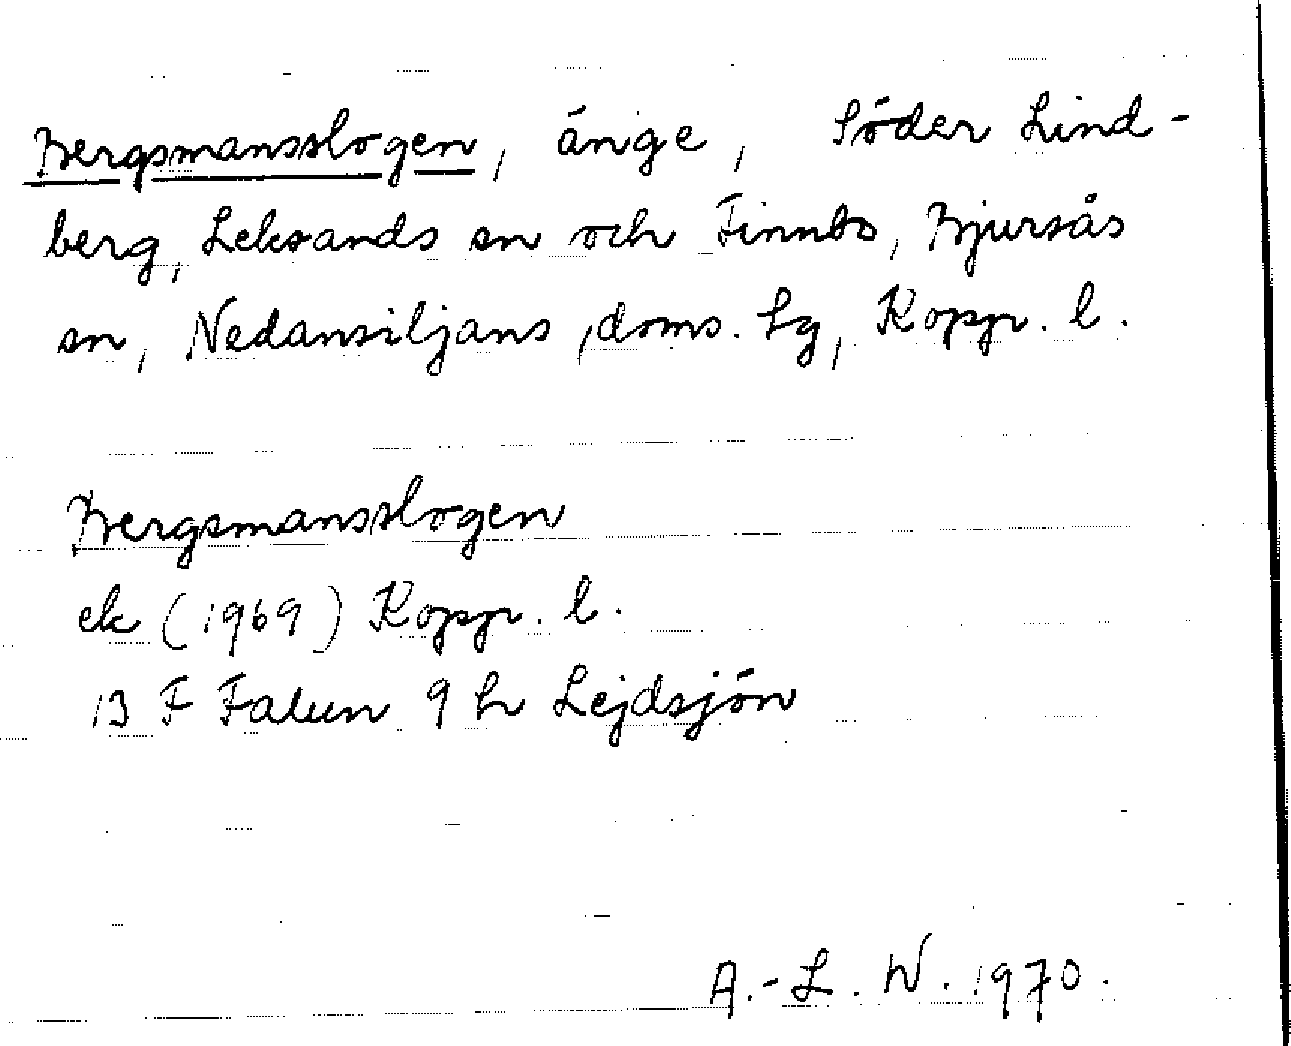 Bergsmansslogen, änge, Söder Lind-
berg, Leksands sn och Finnbo, Bjursås
sn, Nedansiljans doms. lg, Kopp. l.
Bergsmansslogen
ek (1969) Kopp. l.
13 F Falun 9 h Lejdsjön
A.-L. W. 1970.